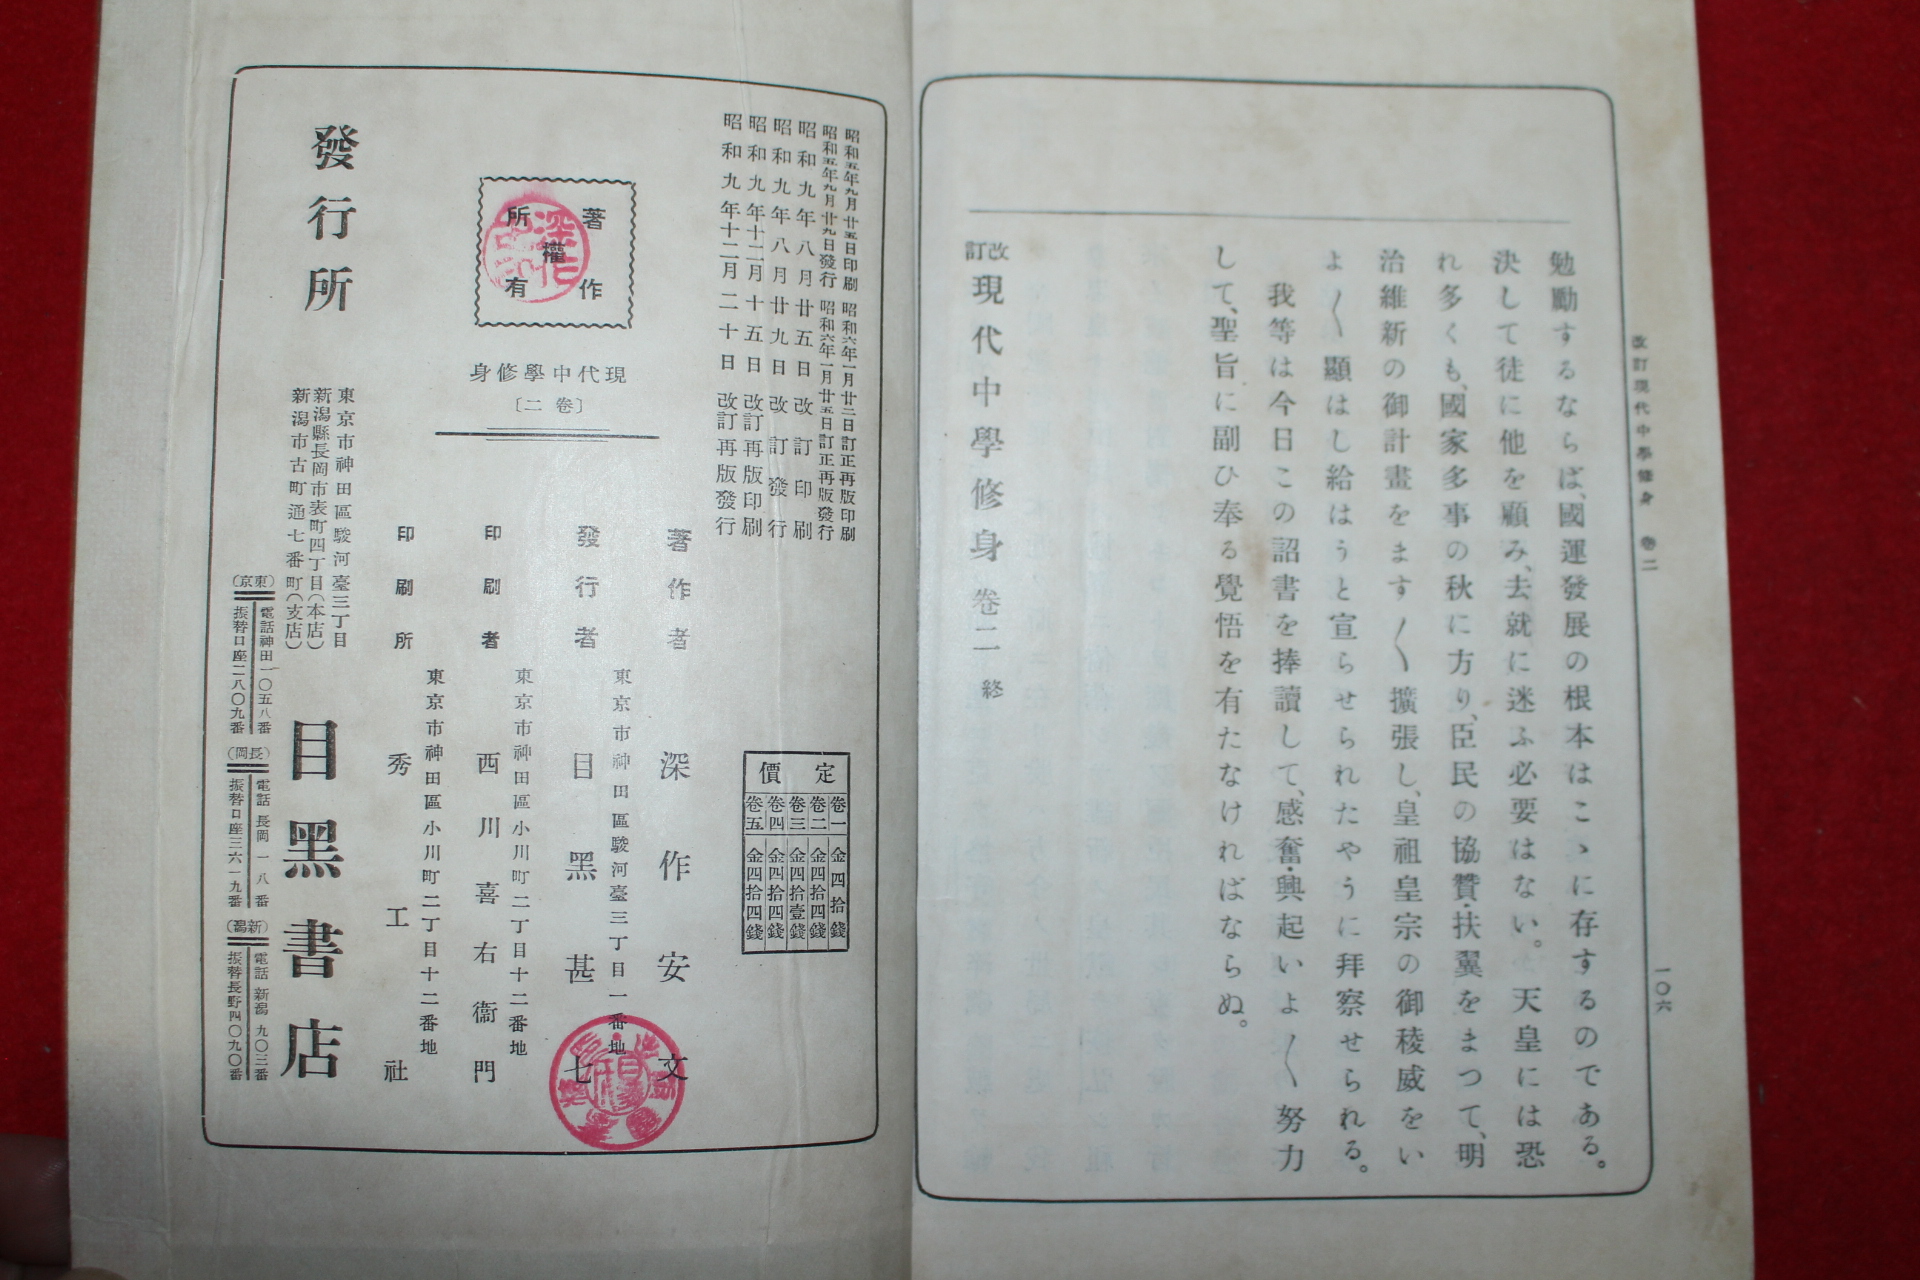 改訂現代中學修身 卷二
一〇六
勉勵するならば、國運發展の根本はこゝに存するのである。
決して徒に他を顧み、去就に迷ふ必要はない。天皇には恐
れ多くも、國家多事の秋に方り、臣民の協贊・扶翼をまつて、明
治維新の御計畫をます〱擴張し、皇祖皇宗の御稜威をい
よ〱顯はし給はうと宣らせられたやうに拜察せられる。
我等は今日この詔書を捧讀して、感奮・興起いよ〱努力
して、聖旨に副ひ奉る覺悟を有たなければならぬ。
改訂現代中學修身卷二終
昭和五年九月廿五日印刷 昭和六年一月廿二日訂正再版印刷
昭和五年九月廿九日發行 昭和六年一月廿五日訂正再版發行
昭和九年八月廿五日改訂印刷
昭和九年八月廿九日改訂發行
昭和九年十二月十五日改訂再版印刷
昭和九年十二月二十日改訂再版發行
定價
卷一 金四拾錢
卷二 金四拾四錢
卷三 金四拾壹錢
卷四 金四拾四錢
卷五 金四拾四錢
著作權所有
現代中學修身
〔卷二〕
著作者 深作安文
東京市神田區駿河臺三丁目一番地
發行者 目黑甚七
東京市神田區小川町二丁目十二番地
印刷者 西川喜右衞門
東京市神田區小川町二丁目十二番地
印刷所 秀工社
發行所
東京市神田區駿河臺三丁目
新潟縣長岡市表町四丁目(本店)
新潟市古町通七番町(支店)
目黑書店
(東京) 電話神田一〇五八番
振替口座二八〇九番
(長岡) 電話長岡一八番
振替口座三六一九番
(新潟) 電話新潟九〇三番
振替長野四〇九〇番